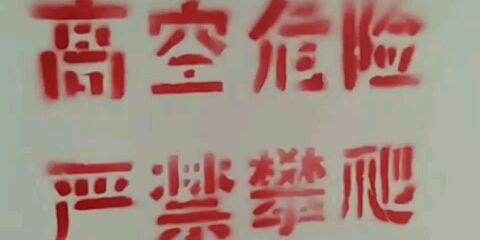 高空危险
严禁攀爬